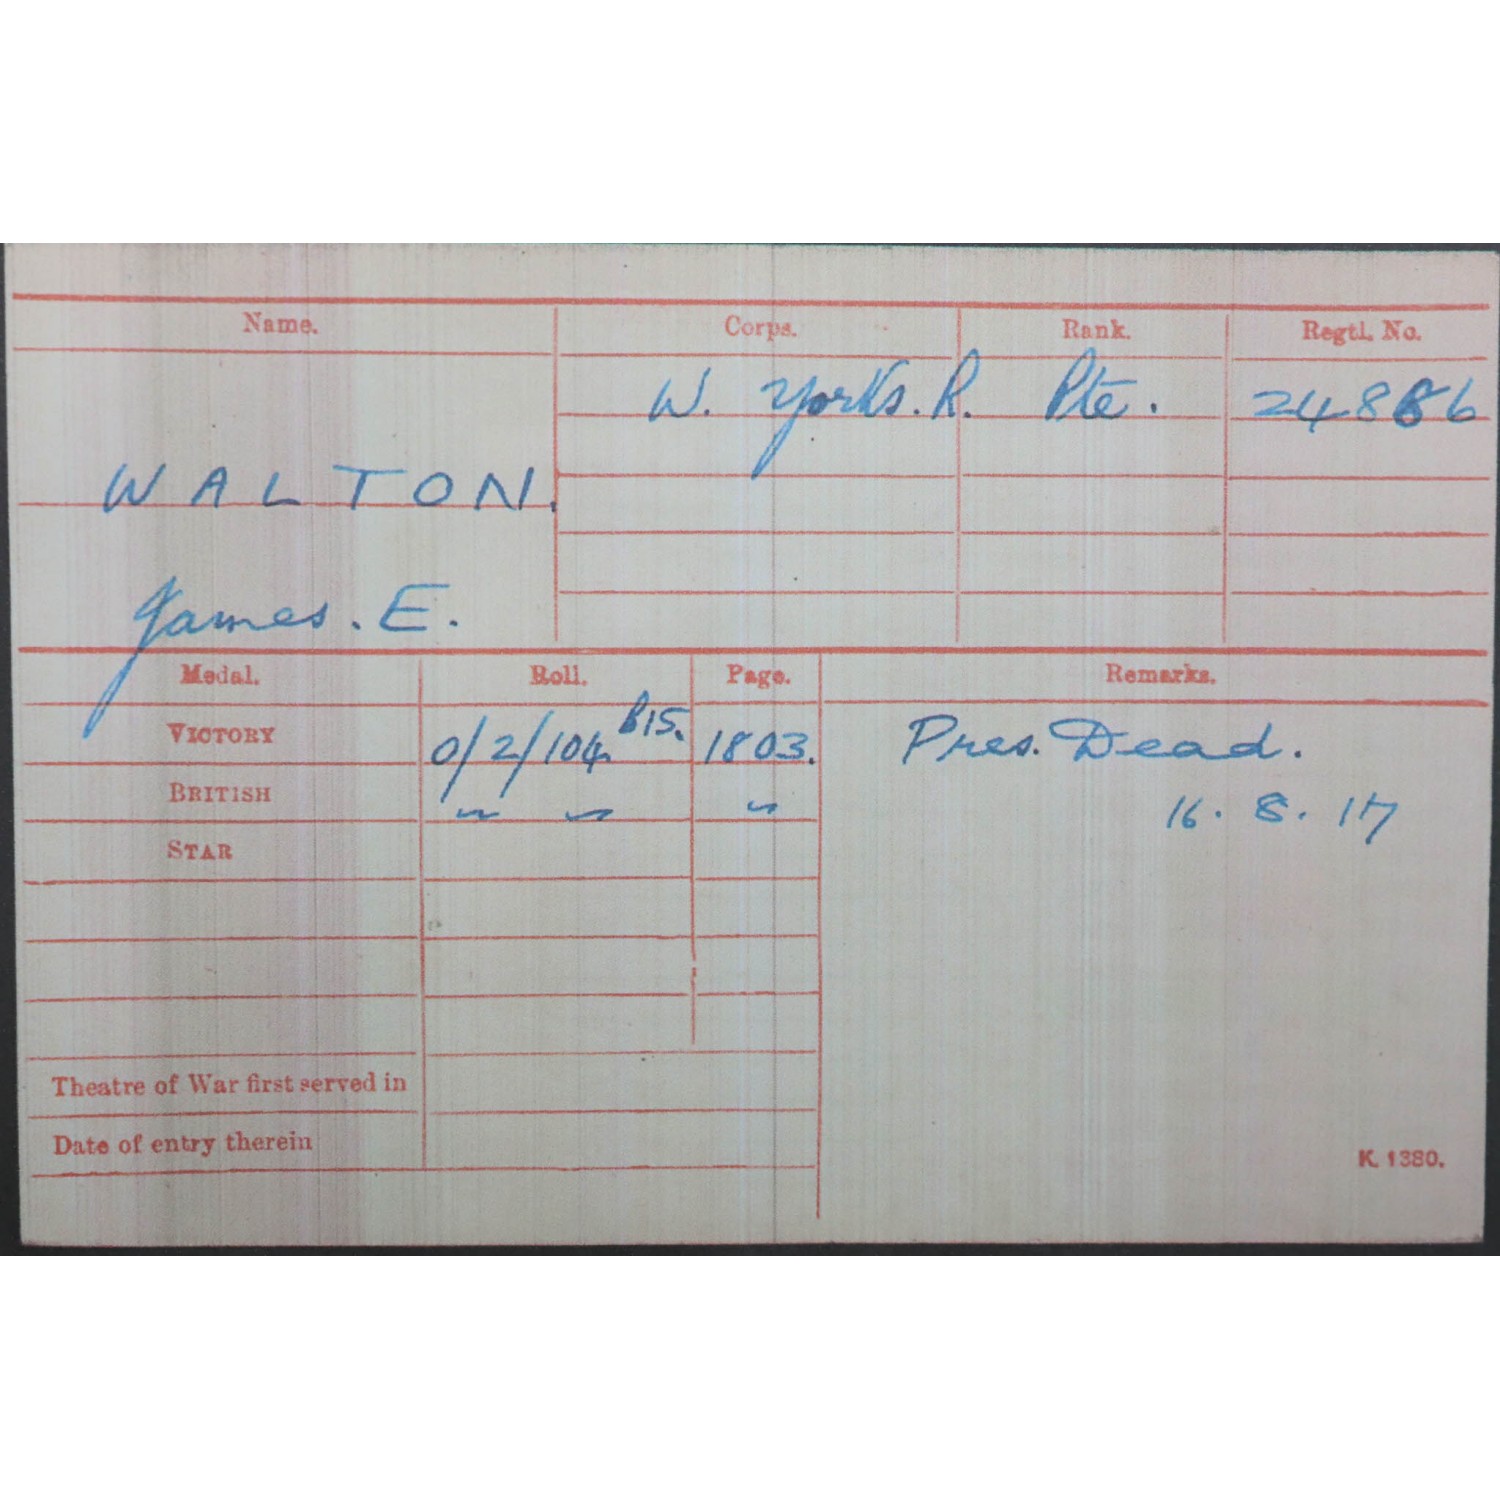 Name. Corps. Rank. Regtl. No.
W. Yorks. R. Pte. 24886
WALTON.
James. E.
Medal. Roll. Page. Remarks.
VICTORY 0/2/104 B15. 1803. Pres. Dead.
BRITISH " " " 16. 8. 17
STAR
Theatre of War first served in
Date of entry therein
K. 1380.